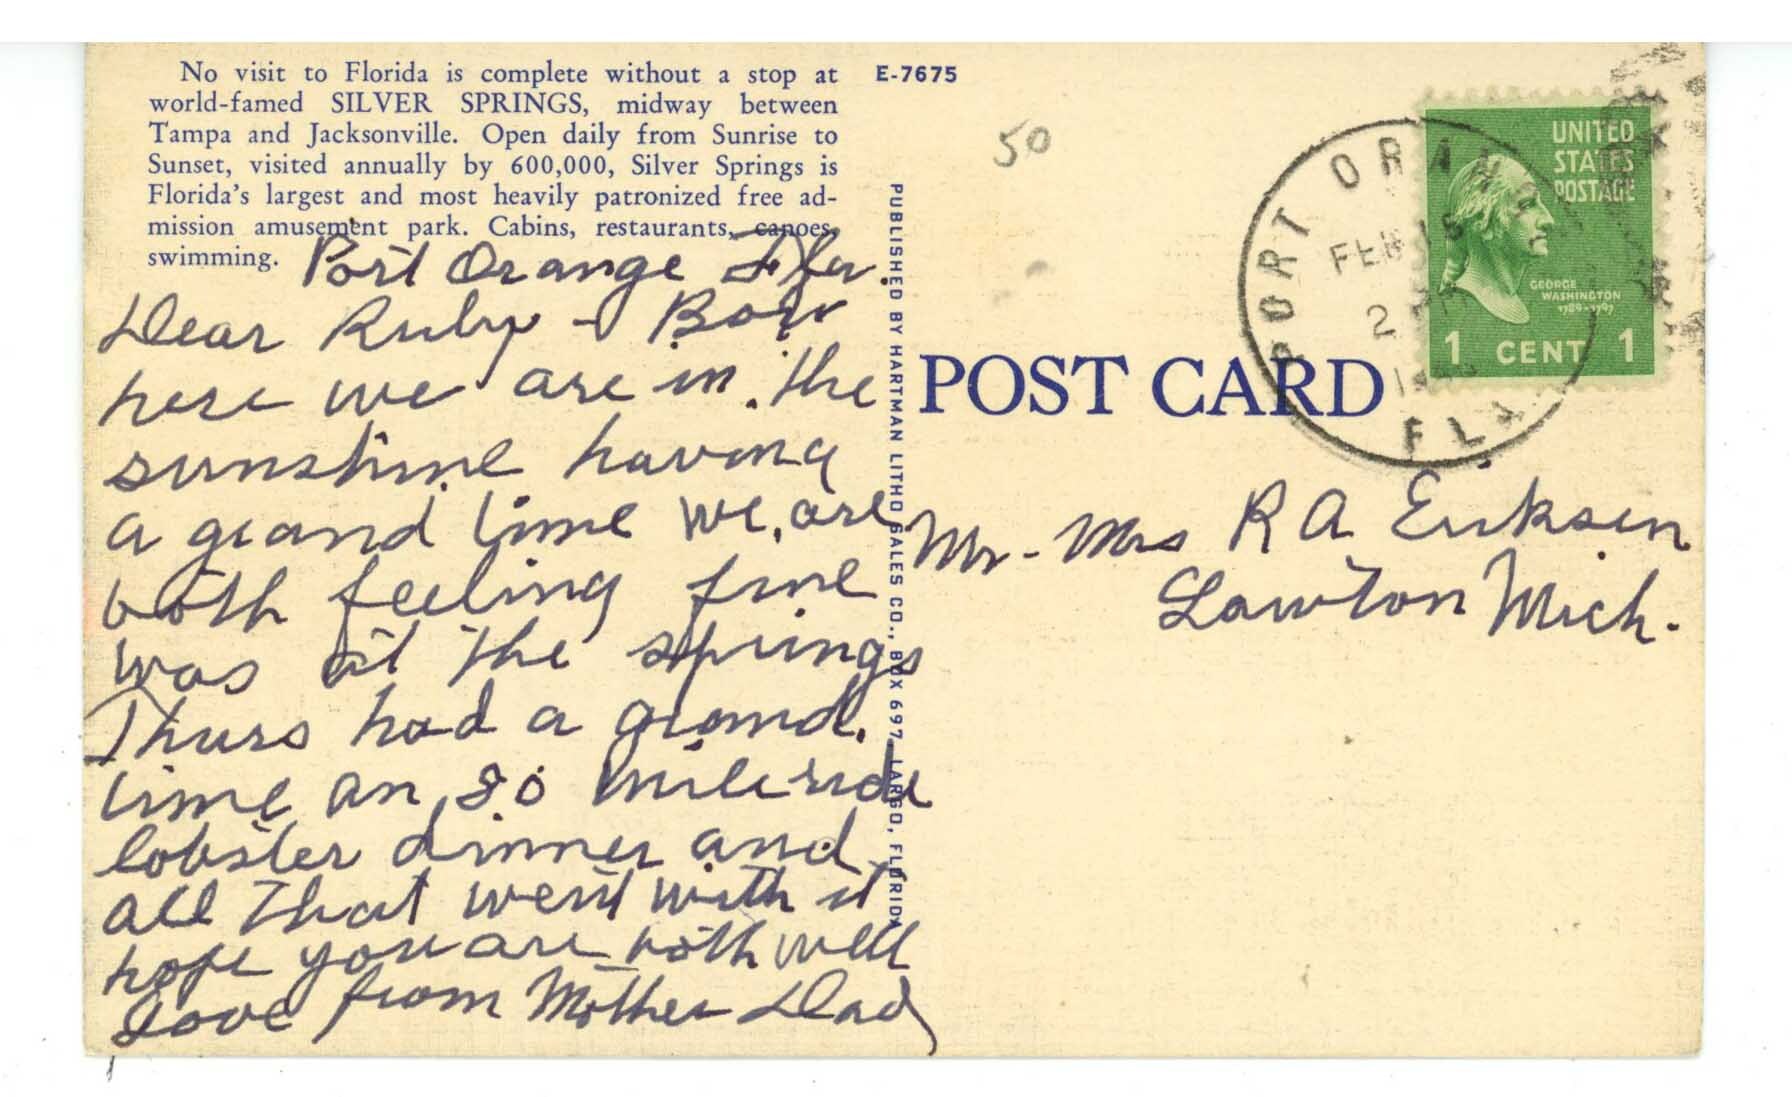 No visit to Florida is complete without a stop at
world-famed SILVER SPRINGS, midway between
Tampa and Jacksonville. Open daily from Sunrise to
Sunset, visited annually by 600,000, Silver Springs is
Florida's largest and most heavily patronized free ad-
mission amusement park. Cabins, restaurants, canoes,
swimming.
Port Orange Fla.
Dear Ruby -
here we are in the
sunshine having
a grand time we are
both feeling fine
was at the springs
Thurs had a grand
time an 80 mile ride
lobster dinner and
all that went with it
hope you are both well
Love from Mother Dad
E-7675
PUBLISHED BY HARTMAN LITHO SALES CO., BOX 697, LARGO, FLORIDA
50
POST CARD
PORT ORANGE
FEB 15
2
FLA
UNITED
STATES
POSTAGE
GEORGE
WASHINGTON
1789-1797
1 CENT 1
Mr - Mrs R A Eriksen
Lawton Mich.